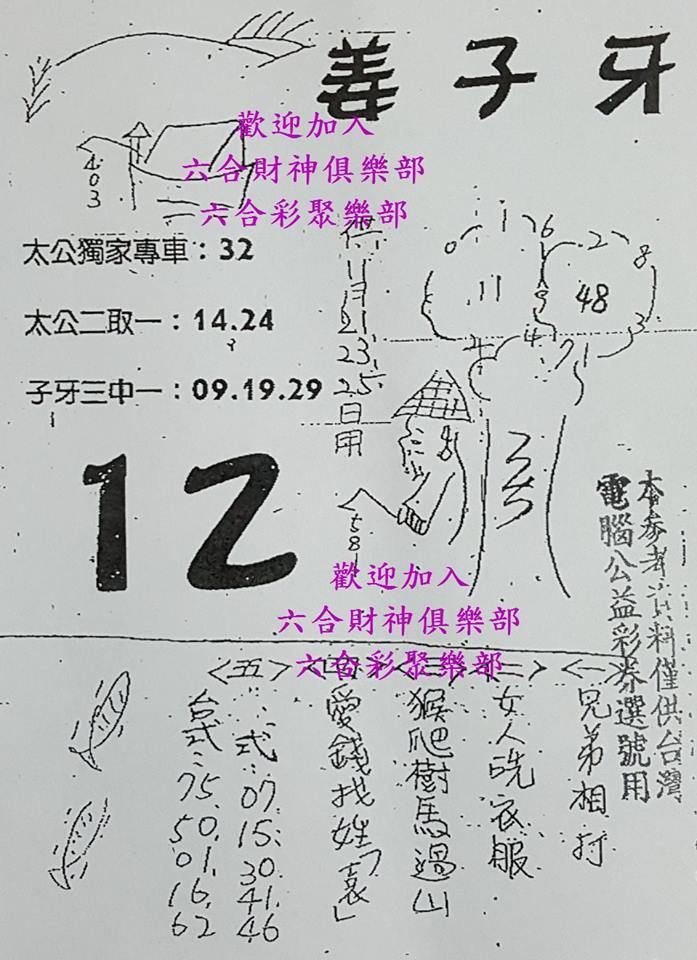 姜子牙
歡迎加入
六合財神俱樂部
六合彩聚樂部
403
太公獨家專車：32
太公二取一：14.24
子牙三中一：09.19.29
12
11月21.23.25日用
11
48
歡迎加入
六合財神俱樂部
六合彩聚樂部
本參考資料僅供台灣
電腦公益彩券選號用
<一>
兄弟相打
<二>
女人洗衣服
<三>
猴爬樹馬過山
<四>
愛錢找姓「袁」
<五>
式：07.15.30.41.46
台式：75.50.01.16.62